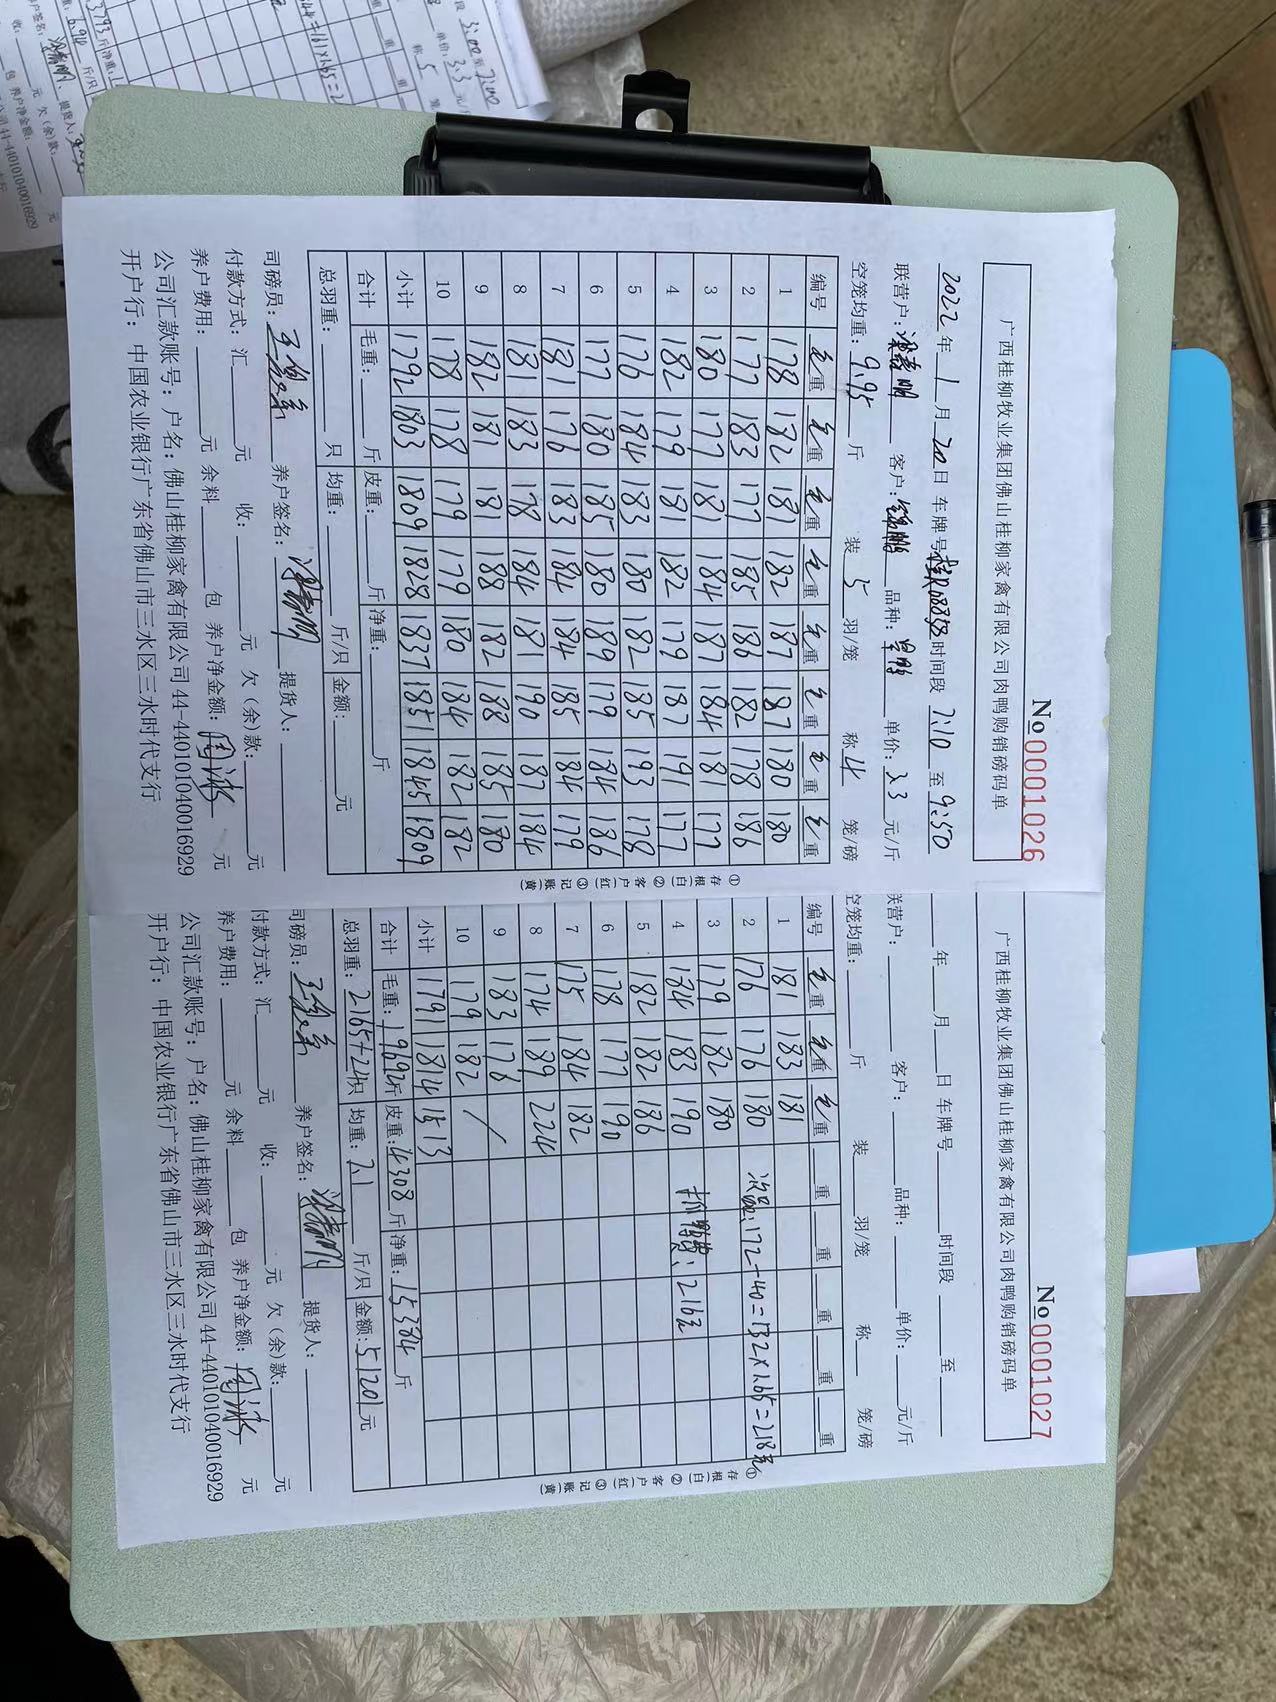 No 0001026
广西桂柳牧业集团佛山桂柳家禽有限公司肉鸭购销磅码单
2022年 1 月 20 日 车牌号 时间段 7:10 至 9:50
联营户: 客户: 品种: 单价: 3.3 元/斤
空笼均重: 9.95 斤 装 5 羽/笼 称 4 笼/磅
编号 毛重 毛重 毛重 毛重 毛重 毛重 毛重 毛重
1 178 182 181 182 187 187 180 180
2 177 183 177 185 186 182 178 186
3 180 177 181 184 187 184 181 177
4 182 179 181 182 179 187 191 177
5 176 184 183 180 182 185 193 178
6 177 180 185 180 189 179 184 186
7 181 176 183 184 184 185 184 179
8 181 183 178 184 181 190 187 184
9 182 181 181 188 182 188 185 180
10 178 178 179 179 180 184 182 182
小计 1792 1803 1809 1828 1837 1851 1845 1809
合计 毛重: 斤 皮重: 斤 净重: 斤
总羽重: 只 均重: 斤/只 金额: 元
司磅员: 养户签名: 提货人:
付款方式: 汇 元 收: 元 欠(余)款: 元
养户费用: 元 余料 包 养户净金额: 元
公司汇款账号: 户名: 佛山桂柳家禽有限公司 44-440101040016929
开户行: 中国农业银行广东省佛山市三水区三水时代支行
①存根(白) ②客户(红) ③记账(黄)
No 0001027
广西桂柳牧业集团佛山桂柳家禽有限公司肉鸭购销磅码单
年 月 日 车牌号 时间段 至
联营户: 客户: 品种: 单价: 元/斤
空笼均重: 斤 装 羽/笼 称 笼/磅
编号 毛重 毛重 毛重 重 重 重 重 重
1 181 183 181
2 176 176 180 次品:172-40=132×1.65=218元
3 179 182 180
4 184 183 190 抓鸭费:216元
5 182 182 186
6 178 177 190
7 175 184 182
8 174 189 224
9 183 176 /
10 179 182
小计 1791 1814 1513
合计 毛重: 19692 斤 皮重: 4308 斤 净重: 15384 斤
总羽重: 2165+24 只 均重: 7.1 斤/只 金额: 51201 元
司磅员: 养户签名: 提货人:
付款方式: 汇 元 收: 元 欠(余)款: 元
养户费用: 元 余料 包 养户净金额: 元
公司汇款账号: 户名: 佛山桂柳家禽有限公司 44-440101040016929
开户行: 中国农业银行广东省佛山市三水区三水时代支行
①存根(白) ②客户(红) ③记账(黄)